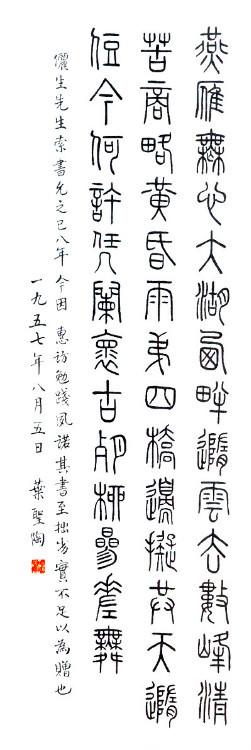 燕雁無心太湖西畔隨雲去數峰清
苦商略黃昏雨弟四橋邊擬共天隨
住今何許凭闌褱古殘柳參差舞
儼生先生索書允之已八年今因惠訪勉踐夙諾其書至拙劣實不足以為贈也
一九五七年八月五日 葉聖陶